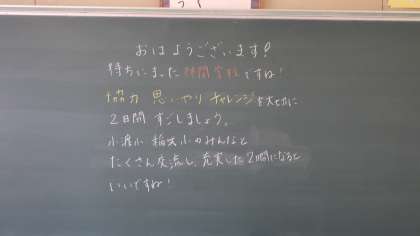 おはようございます!
待ちにまった 林間学校 ですね!
協力 思いやり チャレンジ を大切に
2日間 すごしましょう。
小渡小 稲武小のみんなと
たくさん交流し、充実した2日間になると
いいですね!